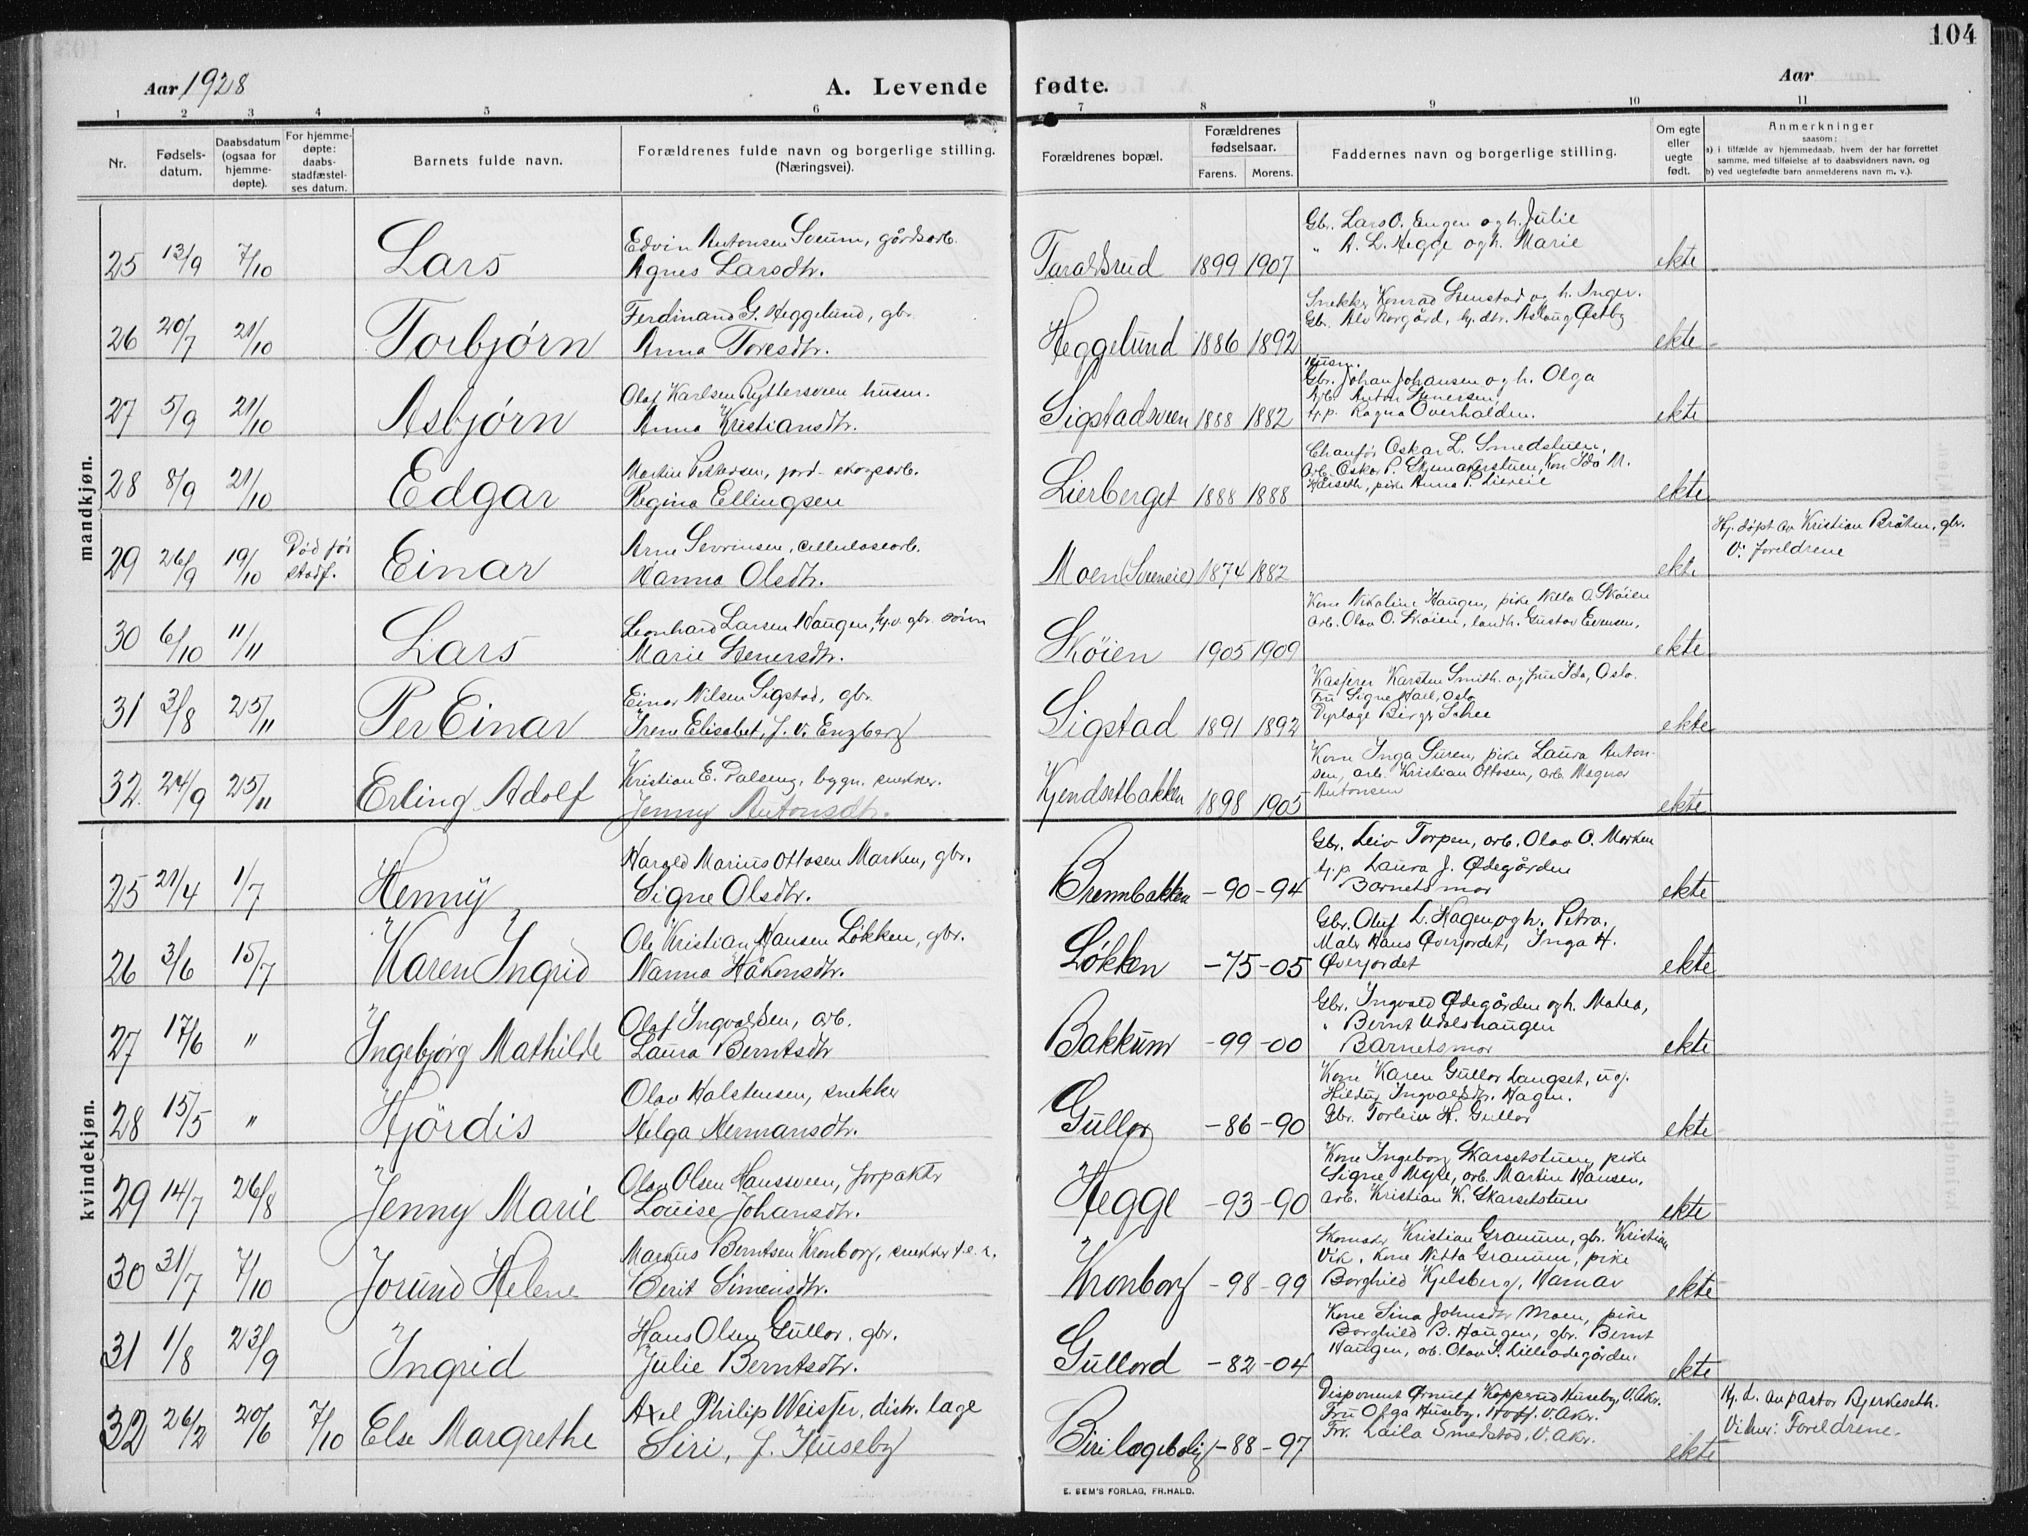 104
Aar 1928
A. Levende fødte.
Aar
1 2 3 4 5 6 7 8 9 10 11
Nr.
Fødsels-
datum.
Daabsdatum
(ogsaa for
hjemme-
døpte).
For hjemme-
døpte:
daabs-
stadfæstel-
ses datum.
Barnets fulde navn.
Forældrenes fulde navn og borgerlige stilling.
(Næringsvei).
Forældrenes bopæl.
Forældrenes
fødselsaar.
Farens. Morens.
Faddernes navn og borgerlige stilling.
Om egte
eller
uegte
født.
Anmerkninger
saasom:
a) i tilfælde av hjemmedaab, hvem der har forrettet
samme, med tilføielse af to daabsvidners navn, og
b) ved uegtefødte barn anmelderens navn m. v.).
mandkjøn.
25 13/9 7/10 Lars
Edvin Antonsen Sveum, gårdsarb.
Agnes Larsdtr.
Taraldsrud 1899 1907
Gbr. Lars O. Engen og h. Julie
" A. L. Hegge og h. Marie
ekte
26 20/7 21/10 Torbjørn
Ferdinand G. Heggelund, gbr.
Anna Toresdtr.
Heggelund 1886 1892
Snekker Konrad Stenstad og h. Inger.
Gbr. Alv Norgård, gbr. dtr. Aslaug Østby
ekte
27 5/9 21/10 Asbjørn
Olaf Karlsen Ryttersveen husm.
Anna Kristiansdtr.
Sigstadsveen 1888 1882
Husm.
Gbr. Johan Johansen og h. Olga
Arb. Anton
t.p. Ragna Overhalden.
ekte
28 8/9 21/10 Edgar
Martin Pettersen, jord- skogsarb.
Regina Ellingsen
Lierberget 1888 1888
Chaufør Oskar L. Smedstuen,
Arb. Oskar P. Skjemakerstuen, Kone Ida M.
Kårseth, pike Anna P. Liereie
ekte
29 26/9 19/10 Død før
stadf. Einar
Arne Sevrinsen, cellulosearb.
Hanna Olsdtr.
Moen (Sveneie) 1874 1882
ekte
Hj. døpt av Kristian Bråten, gbr.
V: Foreldrene
30 6/10 11/11 Lars
Leonhard Larsen Haugen, hj.v. gbr. sønn
Marie Stenersdtr.
Skøien 1905 1909
Kone Nikoline Haugen, pike Nilla O. Skøien
arb. Olav O. Skøien, landh. Gustav Evensen,
ekte
31 3/8 25/11 Per Einar
Einar Nilsen Sigstad, gbr.
Irene Elisabet, f. v. Enzberg
Sigstad 1891 1892
Kasserer Karsten Smith og frue Ida, Oslo.
Fru Signe Hall, Oslo
Dyrlæge Birger Schee
ekte
32. 24/9 25/11 Erling Adolf
Kristian E. Dalseng, bygn. snekker.
Jenny Antonsdtr.
Kjendsetbakken 1898 1905
Kone Inga Suren, pike Laura Anton-
sen, arb. Kristian Ottosen, arb. Magnar
Antonsen
ekte
kvindekjøn.
25 21/4 1/7 Henny
Harald Marius Ottosen Marken, gbr.
Signe Olsdtr.
Brennbakken -90 -94
Gbr. Leiv Torpen, arb. Olav O. Marken
t.p. Laura J. Ødegården
Barnets mor
ekte
26 3/6 15/7 Karen Ingrid
Ole Kristian Hansen Løkken, gbr.
Nanna Håkonsdtr.
Løkken -75 -05
Gbr. Oluf L. Hagen og h. Petra.
Maler Hans Øverjordet, Inga H.
Øverjordet
ekte
27 17/6 " Ingebjørg Mathilde
Olaf Ingvaldsen, arb.
Laura Berntsdtr
Bakkum -99 -00
Gbr. Ingvald Ødegården og h. Matea,
" Bernt Udalshaugen
Barnets mor
ekte
28 15/5 " Hjördis
Olav Halstensen, snekker
Helga Hermansdtr.
Gullor -86 -90
Kone Karen Gullor Langset, ug.
Hildur Ingvalsdtr. Hagen.
Gbr. Torleiv H. Gullor
ekte
29 14/7 26/8 Jenny Marie
Olav Olsen Hanssveen, forpakter
Louise Johansdtr.
Hegge -93 -90
Kone Ingeborg Skarsetstuen, pike
Signe Myre, arb. Martin Hansen,
arb. Kristian K. Skarsetstuen
ekte
30 31/7 7/10 Jorund Helene
Markus Berntsen Kronborg, snekker f.e.r.
Berit Simensdtr.
Kronborg -98 -99
Skomaker Kristian Granum, gbr. Kristian
Vik, kone Nitta Granum, pike
Borghild Kjelsberg, Hamar
ekte
31 1/8 23/9 Ingrid
Hans Olsen Gullor, gbr.
Julie Berntsdtr.
Gullord -82 -04
Kone Sina Johnsdtr Moen, pike
Borghild B. Haugen, gbr. Bernt
Haugen, arb. Olav S. Lilleødegården.
ekte
32 26/2 20/6 7/10 Else Margrethe
Axel Philip Weister, distr. læge
Siri, f. Huseby
Biri lægebolig -88 -97
Disponent Ørnulf Kopperud Huseby, V. Akr.
Fru Olga Huseby, Hoff, V. Akr.
Frk. Laila Smedstad, V. Akr.
ekte
Hj. d. av pastor Bjerkeseth.
Vitner: Foreldrene.
E. SEM'S FORLAG, FR.HALD.